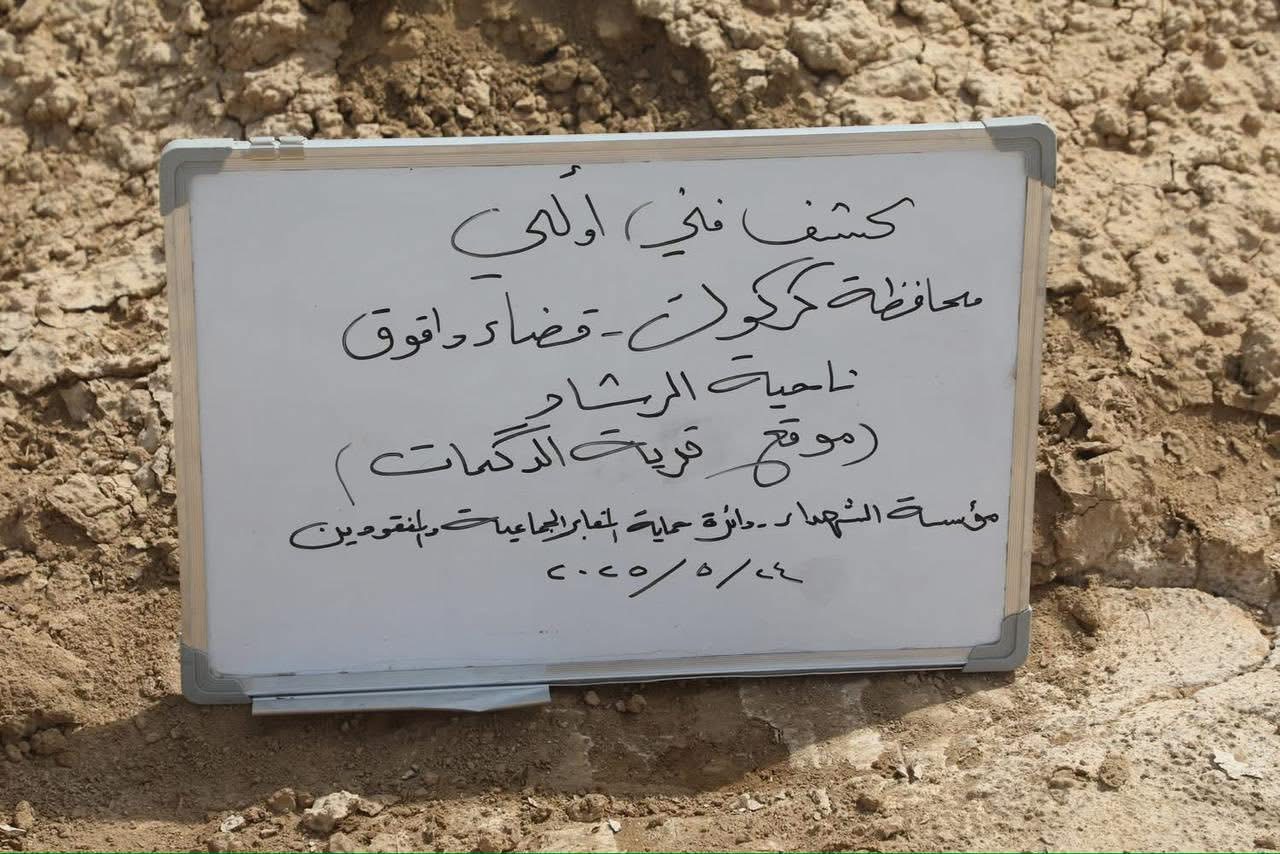 كشف فني أولي
محافظة كركوك - قضاء داقوق
ناحية الرشاد
(موقع قرية الدگمات)
مؤسسة الشهداء - دائرة حماية المقابر الجماعية والمفقودين
٢٠٢٥/٥/٢٤